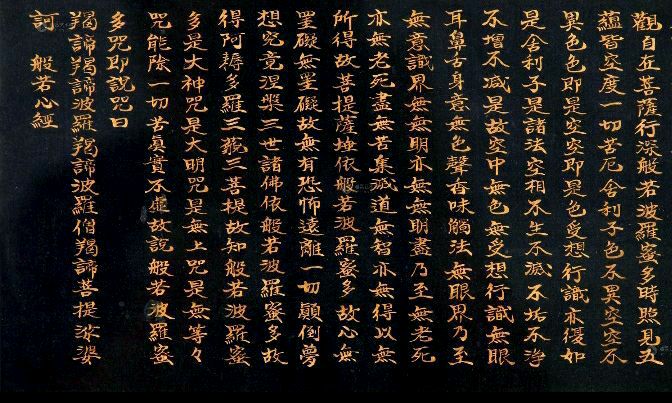 觀自在菩薩行深般若波羅蜜多時照見五
蘊皆空度一切苦厄舍利子色不異空空不
異色色即是空空即是色受想行識亦復如
是舍利子是諸法空相不生不滅不垢不淨
不增不減是故空中無色無受想行識無眼
耳鼻舌身意無色聲香味觸法無眼界乃至
無意識界無無明亦無無明盡乃至無老死
亦無老死盡無苦集滅道無智亦無得以無
所得故菩提薩埵依般若波羅蜜多故心無
罣礙無罣礙故無有恐怖遠離一切顛倒夢
想究竟涅槃三世諸佛依般若波羅蜜多故
得阿耨多羅三藐三菩提故知般若波羅蜜
多是大神咒是大明咒是無上咒是無等々
咒能除一切苦真實不虛故說般若波羅蜜
多咒即說咒曰
羯諦羯諦波羅羯諦波羅僧羯諦菩提娑婆
訶 般若心經